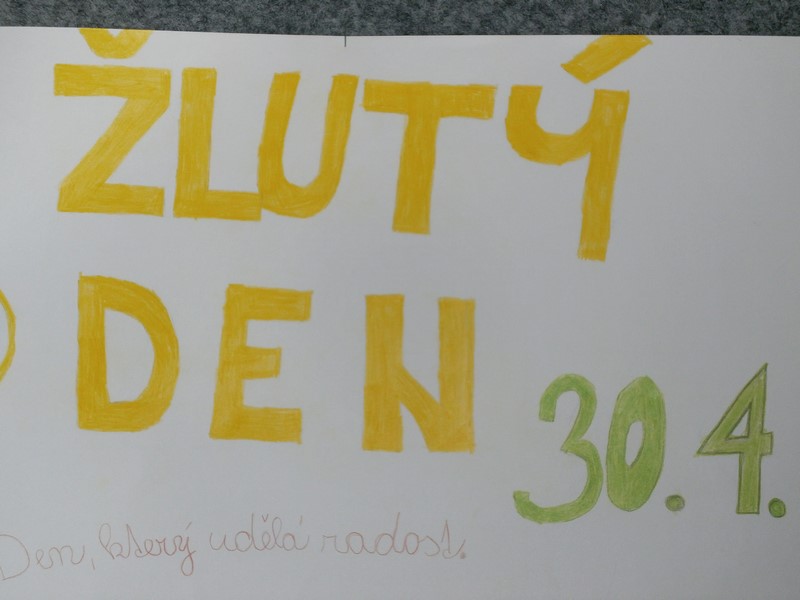 ŽLUTÝ
DEN
30.4.
Den, který udělá radost.